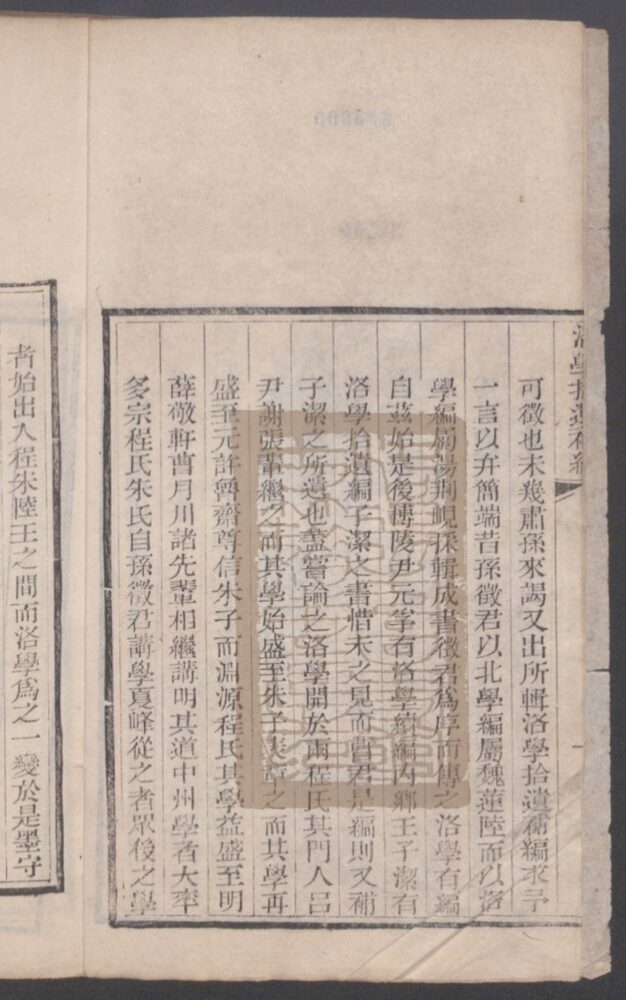 洛學拾遺補編
可徵也未幾肅孫來謁又出所輯洛學拾遺補編求予
一言以弁簡端昔孫徵君以北學編屬魏蓮陸而以洛
學編屬湯荆峴採輯成書徵君爲序而傳之洛學有編
自茲始是後博陵尹元孚有洛學續編內鄉王子潔有
洛學拾遺編子潔之書惜未之見而曹君是編則又補
子潔之所遺也蓋嘗論之洛學開於兩程氏其門人呂
尹謝張輩繼之而其學始盛至朱子表章之而其學再
盛至元許魯齋尊信朱子而淵源程氏其學益盛至明
薛敬軒曹月川諸先輩相繼講明其道中州學者大率
多宗程氏朱氏自孫徵君講學夏峰從之者眾後之學
者始出入程朱陸王之間而洛學爲之一變於是墨守